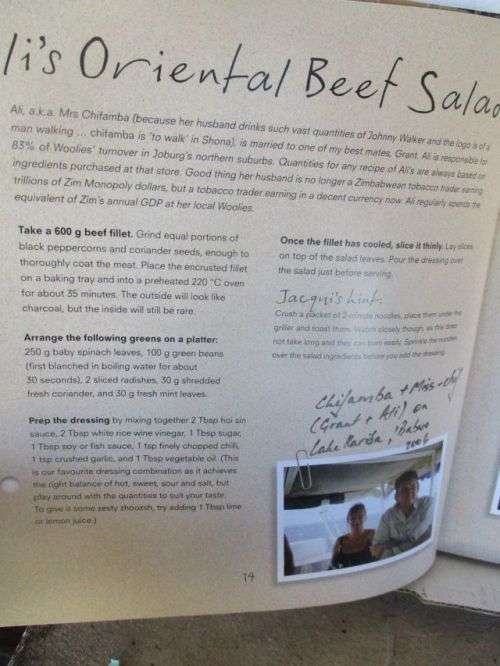 li's Oriental Beef Salad
Ali, a.k.a. Mrs Chifamba (because her husband drinks such vast quantities of Johnny Walker and the logo is of a
man walking ... chifamba is 'to walk' in Shona), is married to one of my best mates, Grant. Ali is responsible for
83% of Woolies' turnover in Joburg's northern suburbs. Quantities for any recipe of Ali's are always based on
ingredients purchased at that store. Good thing her husband is no longer a Zimbabwean tobacco trader earning
trillions of Zim Monopoly dollars, but a tobacco trader earning in a decent currency now. Ali regularly spends the
equivalent of Zim's annual GDP at her local Woolies.
Take a 600 g beef fillet. Grind equal portions of
black peppercorns and coriander seeds, enough to
thoroughly coat the meat. Place the encrusted fillet
on a baking tray and into a preheated 220 °C oven
for about 35 minutes. The outside will look like
charcoal, but the inside will still be rare.
Arrange the following greens on a platter:
250 g baby spinach leaves, 100 g green beans
(first blanched in boiling water for about
30 seconds), 2 sliced radishes, 30 g shredded
fresh coriander, and 30 g fresh mint leaves.
Prep the dressing by mixing together 2 Tbsp hoi sin
sauce, 2 Tbsp white rice wine vinegar, 1 Tbsp sugar,
1 Tbsp soy or fish sauce, 1 tsp finely chopped chilli,
1 tsp crushed garlic, and 1 Tbsp vegetable oil. (This
is our favourite dressing combination as it achieves
the right balance of hot, sweet, sour and salt, but
play around with the quantities to suit your taste.
To give it some zesty zhoozsh, try adding 1 Tbsp lime
or lemon juice.)
Once the fillet has cooled, slice it thinly. Lay slices
on top of the salad leaves. Pour the dressing over
the salad just before serving.
Jacqui's hint:
Crush a packet of 2-minute noodles, place them under the
griller and toast them. Watch closely though, as this does
not take long and they can burn easily. Sprinkle the noodles
over the salad ingredients before you add the dressing.
Chifamba + Miss-chif
(Grant + Ali) on
Lake Kariba,
2006
14